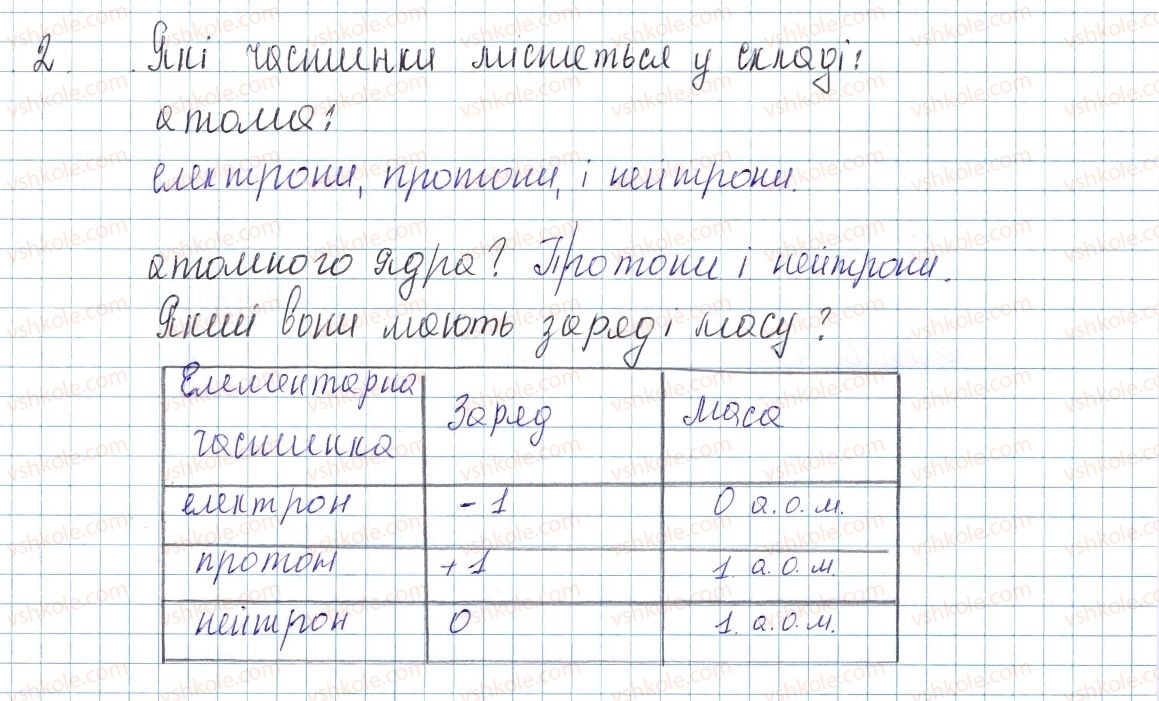 2 Які частинки містяться у складі:
атома?
електрони, протони, і нейтрони.
атомного ядра? Протони і нейтрони.
Який вони мають заряд і масу?
Елементарна частинка Заряд Маса
електрон -1 0 а.о.м.
протон +1 1 а.о.м.
нейтрон 0 1 а.о.м.
vshkole.com